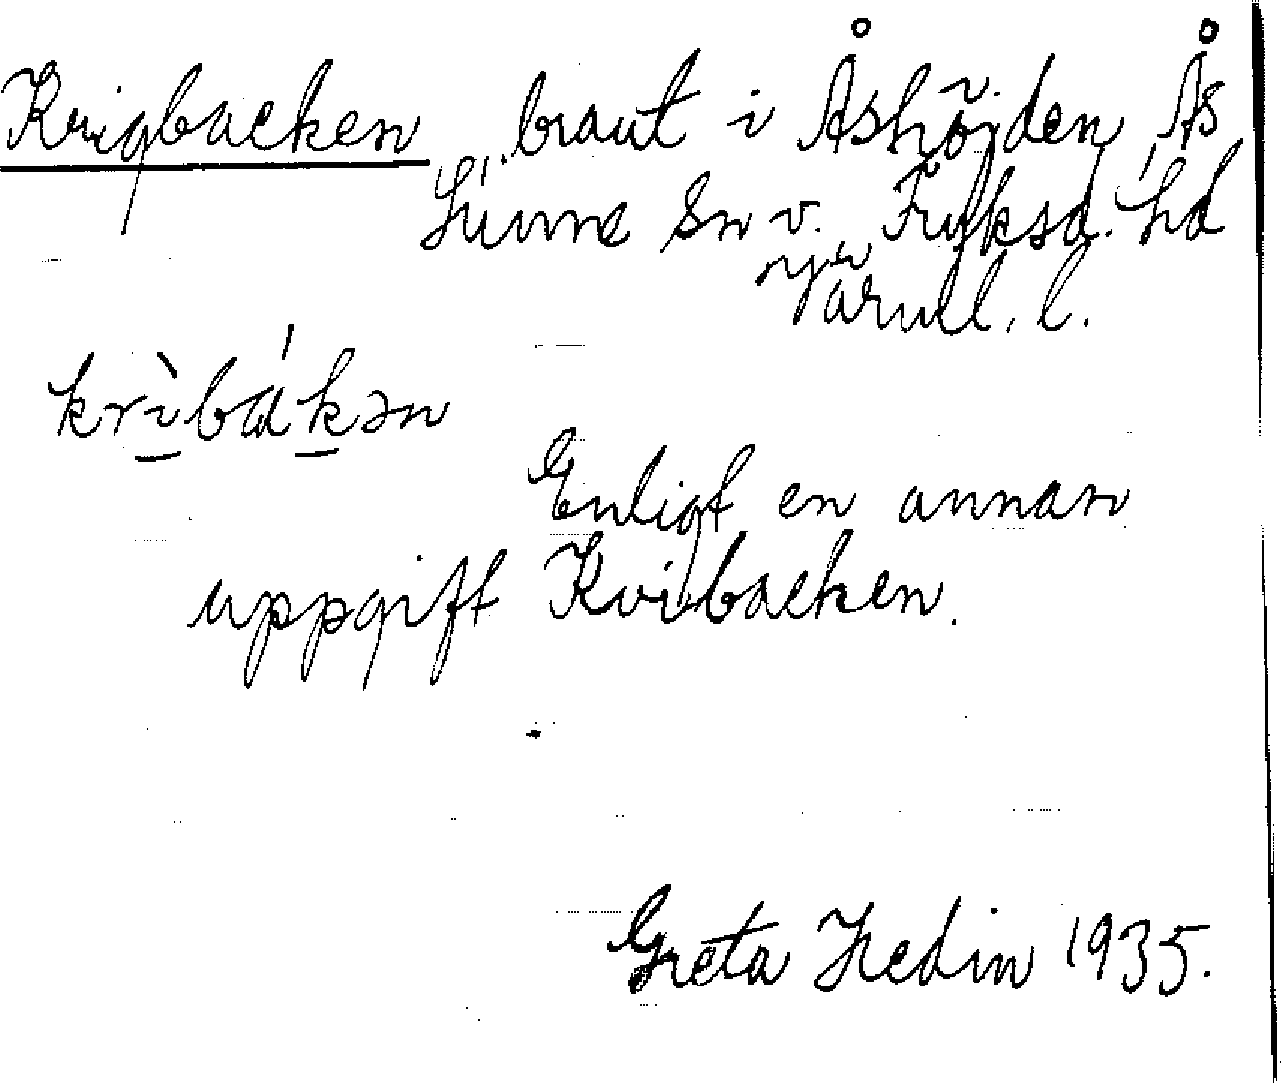 Krigbacken brant i Åshöjden, Ås
Sunne Sn v. Fryksd. hd
Värml. l.
krìbákən
Enligt en annan
uppgift Kvibacken.
Greta Hedin 1935.